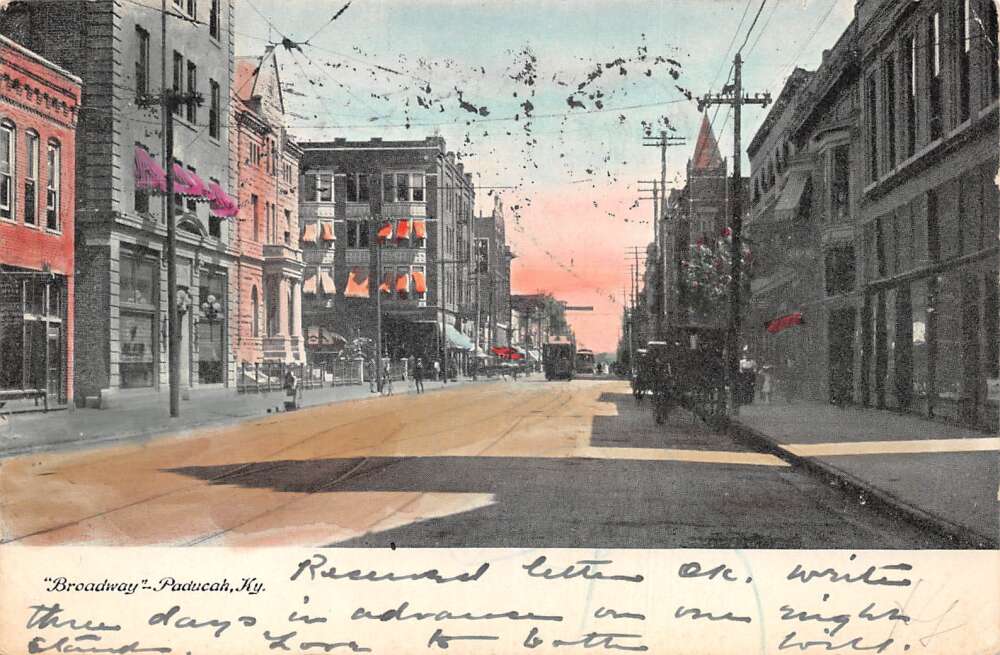 "Broadway"- Paducah, Ky.
Received letter OK. write
three days in advance on one nights
stand. Love to both Will.